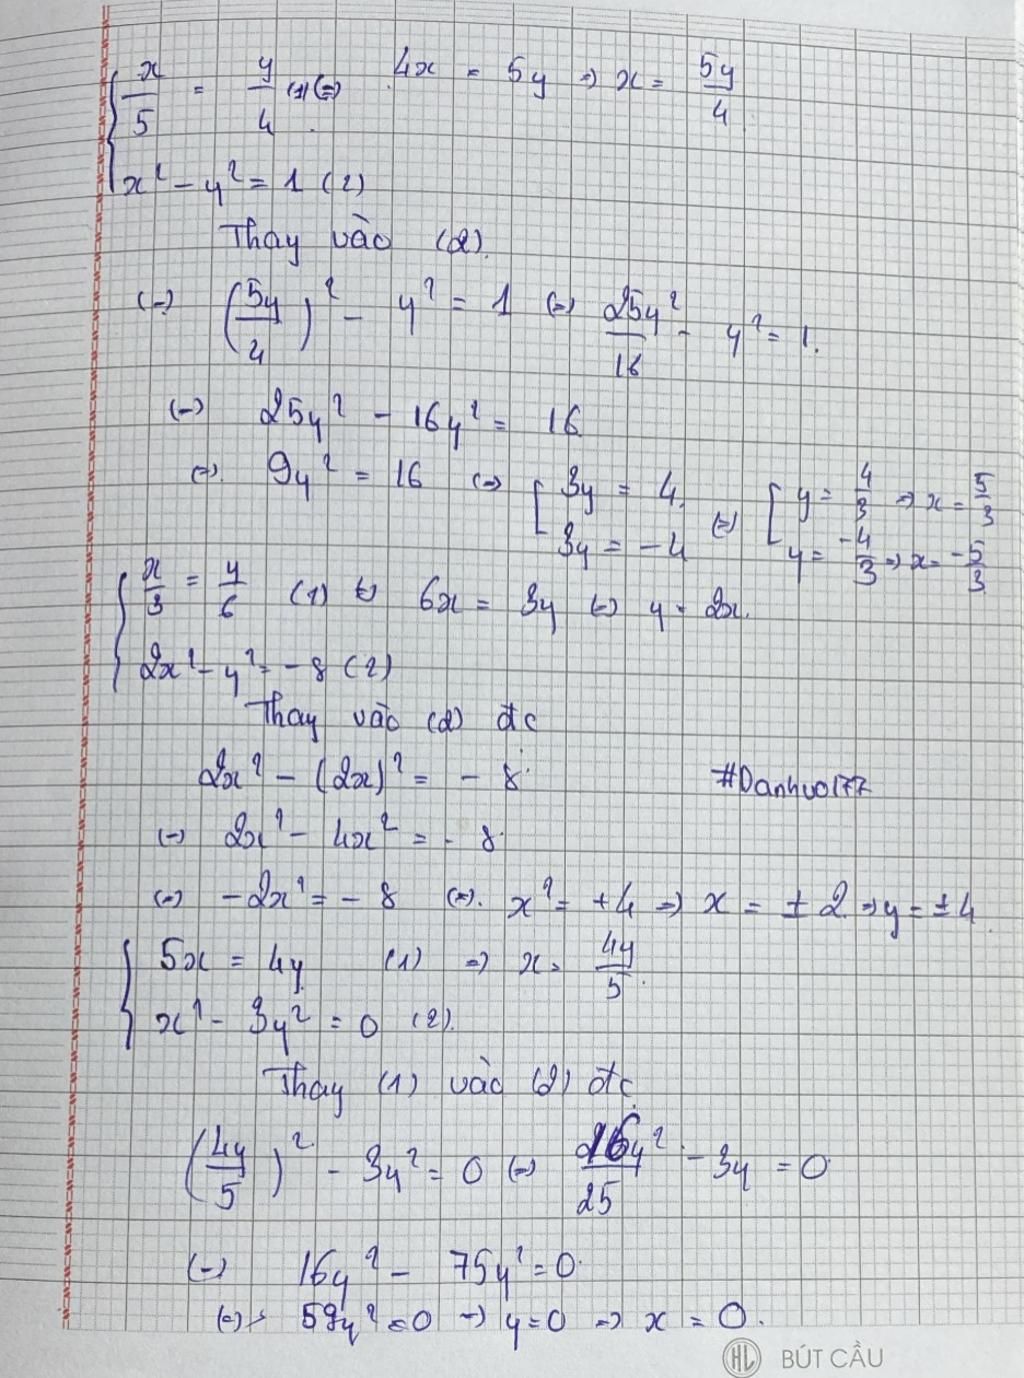 x/5 = y/4 (1) (=) 4x = 5y => x = 5y/4
x² - y² = 1 (2)
Thay vào (2)
(=) (5y/4)² - y² = 1 (=) 25y²/16 - y² = 1.
(=) 25y² - 16y² = 16
(=) 9y² = 16 (=) [ 3y = 4 (=) [ y = 4/3 => x = 5/3
3y = -4 y = -4/3 => x = -5/3
x/3 = y/6 (1) (=) 6x = 3y (=) y = 2x.
2x² - y² = -8 (2)
Thay vào (2) đc
2x² - (2x)² = - 8
#Danhuo177
(=) 2x² - 4x² = - 8
(=) -2x² = - 8 (=). x² = +4 => x = ±2 => y = ±4
5x = 4y (1) => x = 4y/5.
x² - 3y² = 0 (2).
Thay (1) vào (2) đc
(4y/5)² - 3y² = 0 (=) 16y²/25 - 3y = 0
(=) 16y² - 75y² = 0.
(=) 59y² = 0 => y = 0 => x = 0.
HL BÚT CẦU